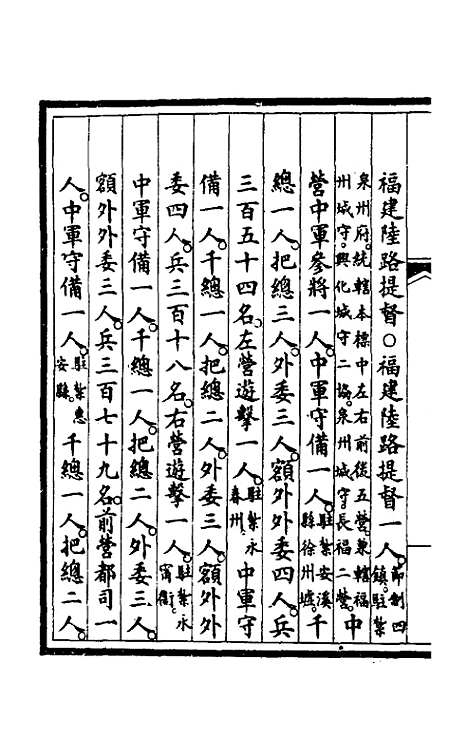 福建陸路提督○福建陸路提督一人。節制四鎮。駐紮
泉州府。統轄本標中左右前後五營。兼轄福州城守。興化城守二協。泉州城守。長福二營。中
營中軍參將一人。中軍守備一人。駐紮安溪縣徐州墟。千
總一人。把總三人。外委三人。額外外委四人。兵
三百五十四名。左營遊擊一人。駐紮永春州。中軍守
備一人。千總一人。把總二人。外委三人。額外外
委四人。兵三百十八名。右營遊擊一人。駐紮永甯衞。
中軍守備一人。千總一人。把總二人。外委三人。
額外外委三人。兵三百七十九名。前營都司一
人。中軍守備一人。駐紮惠安縣。千總一人。把總二人。